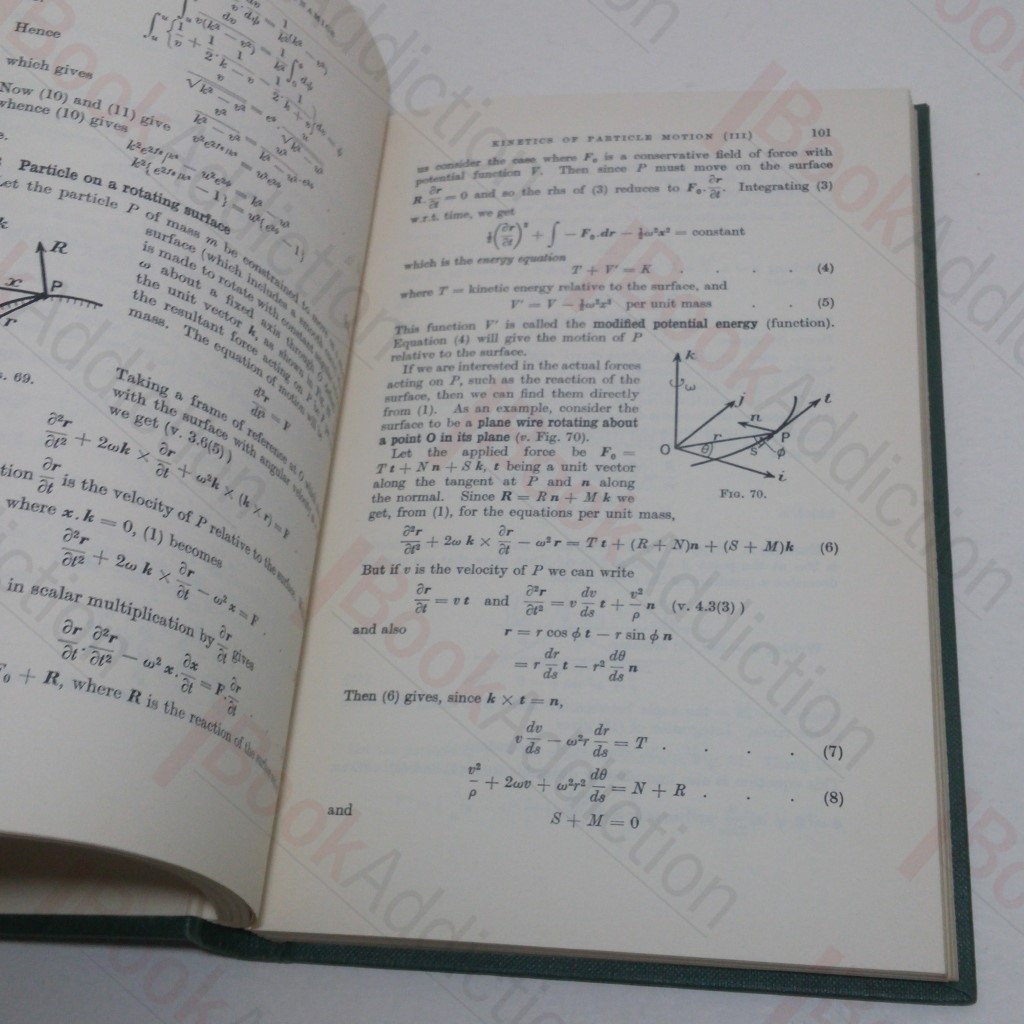 Hence
which gives
Now (10) and (11) give
whence (10) gives
Particle on a rotating surface
Let the particle P of mass m be constrained to
surface (which includes a smooth
is made to rotate with constant
ω about a fixed axis through
the unit vector k, as shown
the resultant force acting on P
mass. The equation of motion
k
R
x
P
r
69.
d²r/dt² = F
Taking a frame of reference at O
with the surface with angular
we get (v. 3.6(5))
∂²r/∂t² + 2ωk × ∂r/∂t + ω²k × (k × r) = F
∂r/∂t is the velocity of P relative to the surface.
where x.k = 0, (1) becomes
∂²r/∂t² + 2ωk × ∂r/∂t − ω²x = F
in scalar multiplication by ∂r/∂t gives
∂r/∂t . ∂²r/∂t² − ω²x . ∂x/∂t = F . ∂r/∂t
F₀ + R, where R is the reaction of the
KINETICS OF PARTICLE MOTION (III) 101
us consider the case where F₀ is a conservative field of force with
potential function V. Then since P must move on the surface
R.∂r/∂t = 0 and so the rhs of (3) reduces to F₀.∂r/∂t. Integrating (3)
w.r.t. time, we get
½(∂r/∂t)² + ∫ − F₀.dr − ½ω²x² = constant
which is the energy equation
T + V′ = K . . . . (4)
where T = kinetic energy relative to the surface, and
V′ = V − ½ω²x² per unit mass . . (5)
This function V′ is called the modified potential energy (function).
Equation (4) will give the motion of P
relative to the surface.
If we are interested in the actual forces
acting on P, such as the reaction of the
surface, then we can find them directly
from (1). As an example, consider the
surface to be a plane wire rotating about
a point O in its plane (v. Fig. 70).
Let the applied force be F₀ =
T t + N n + S k, t being a unit vector
along the tangent at P and n along
the normal. Since R = R n + M k we
get, from (1), for the equations per unit mass,
k
ω
j
t
n
r
P
O
θ
s
ϕ
i
FIG. 70.
∂²r/∂t² + 2ω k × ∂r/∂t − ω² r = T t + (R + N)n + (S + M)k (6)
But if v is the velocity of P we can write
∂r/∂t = v t and ∂²r/∂t² = v dv/ds t + v²/ρ n (v. 4.3(3) )
and also r = r cos ϕ t − r sin ϕ n
= r dr/ds t − r² dθ/ds n
Then (6) gives, since k × t = n,
v dv/ds − ω²r dr/ds = T . . . . (7)
v²/ρ + 2ωv + ω²r² dθ/ds = N + R . . . (8)
and S + M = 0
BookAddiction